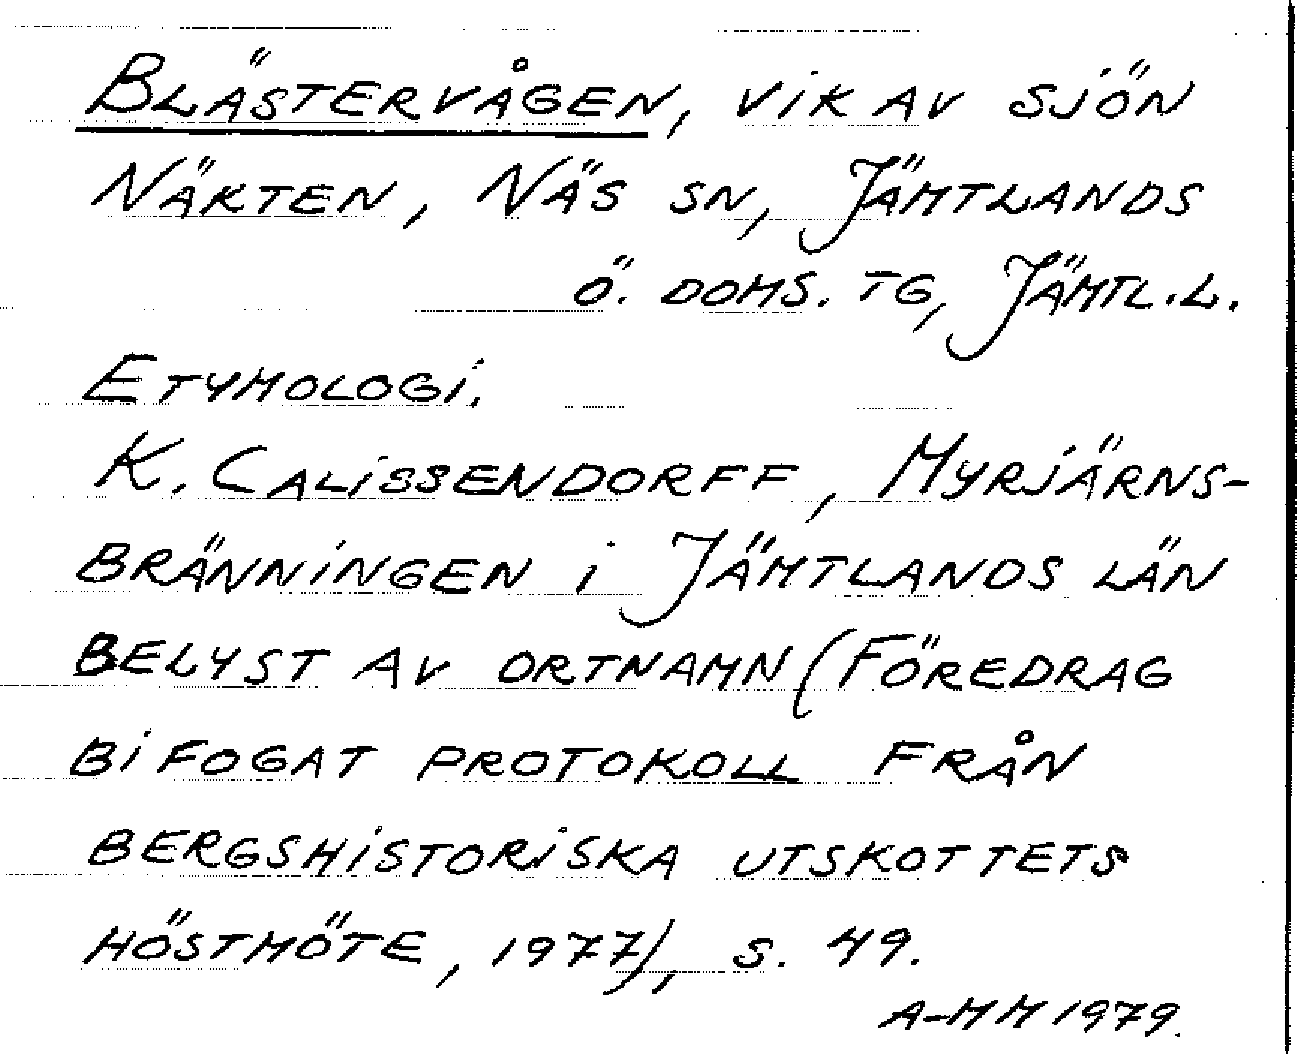 BLÄSTERVÅGEN, VIK AV SJÖN
NÄKTEN, NÄS SN, JÄMTLANDS
Ö. DOMS. TG, JÄMTL.L.
ETYMOLOGI.
K. CALISSENDORFF, MYRJÄRNS-
BRÄNNINGEN I JÄMTLANDS LÄN
BELYST AV ORTNAMN (FÖREDRAG
BIFOGAT PROTOKOLL FRÅN
BERGSHISTORISKA UTSKOTTETS
HÖSTMÖTE, 1977), S. 49.
A-MM 1979.